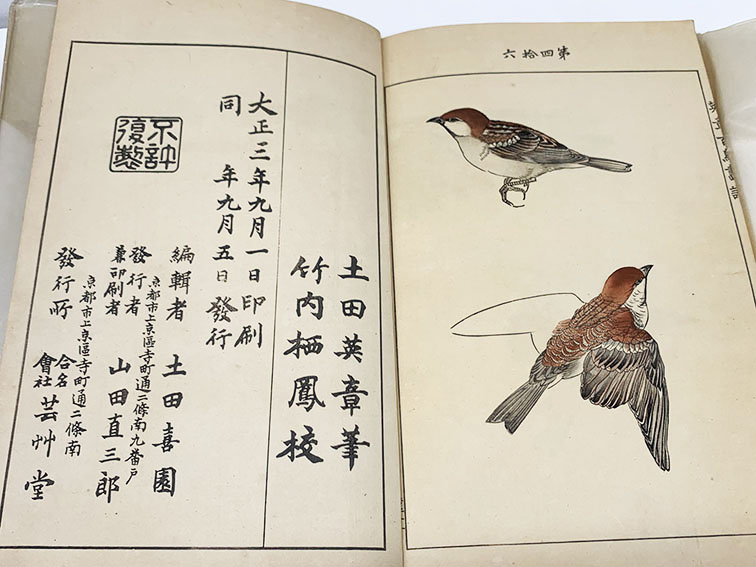 第四拾六
土田英章筆
竹内栖鳳校
大正三年九月一日印刷
同　年九月五日發行
不許
復製
編輯者　土田喜園
京都市上京區寺町通二條南九番戸
發行者
兼印刷者　山田直三郎
京都市上京區寺町通二條南
發行所　合名會社　芸艸堂